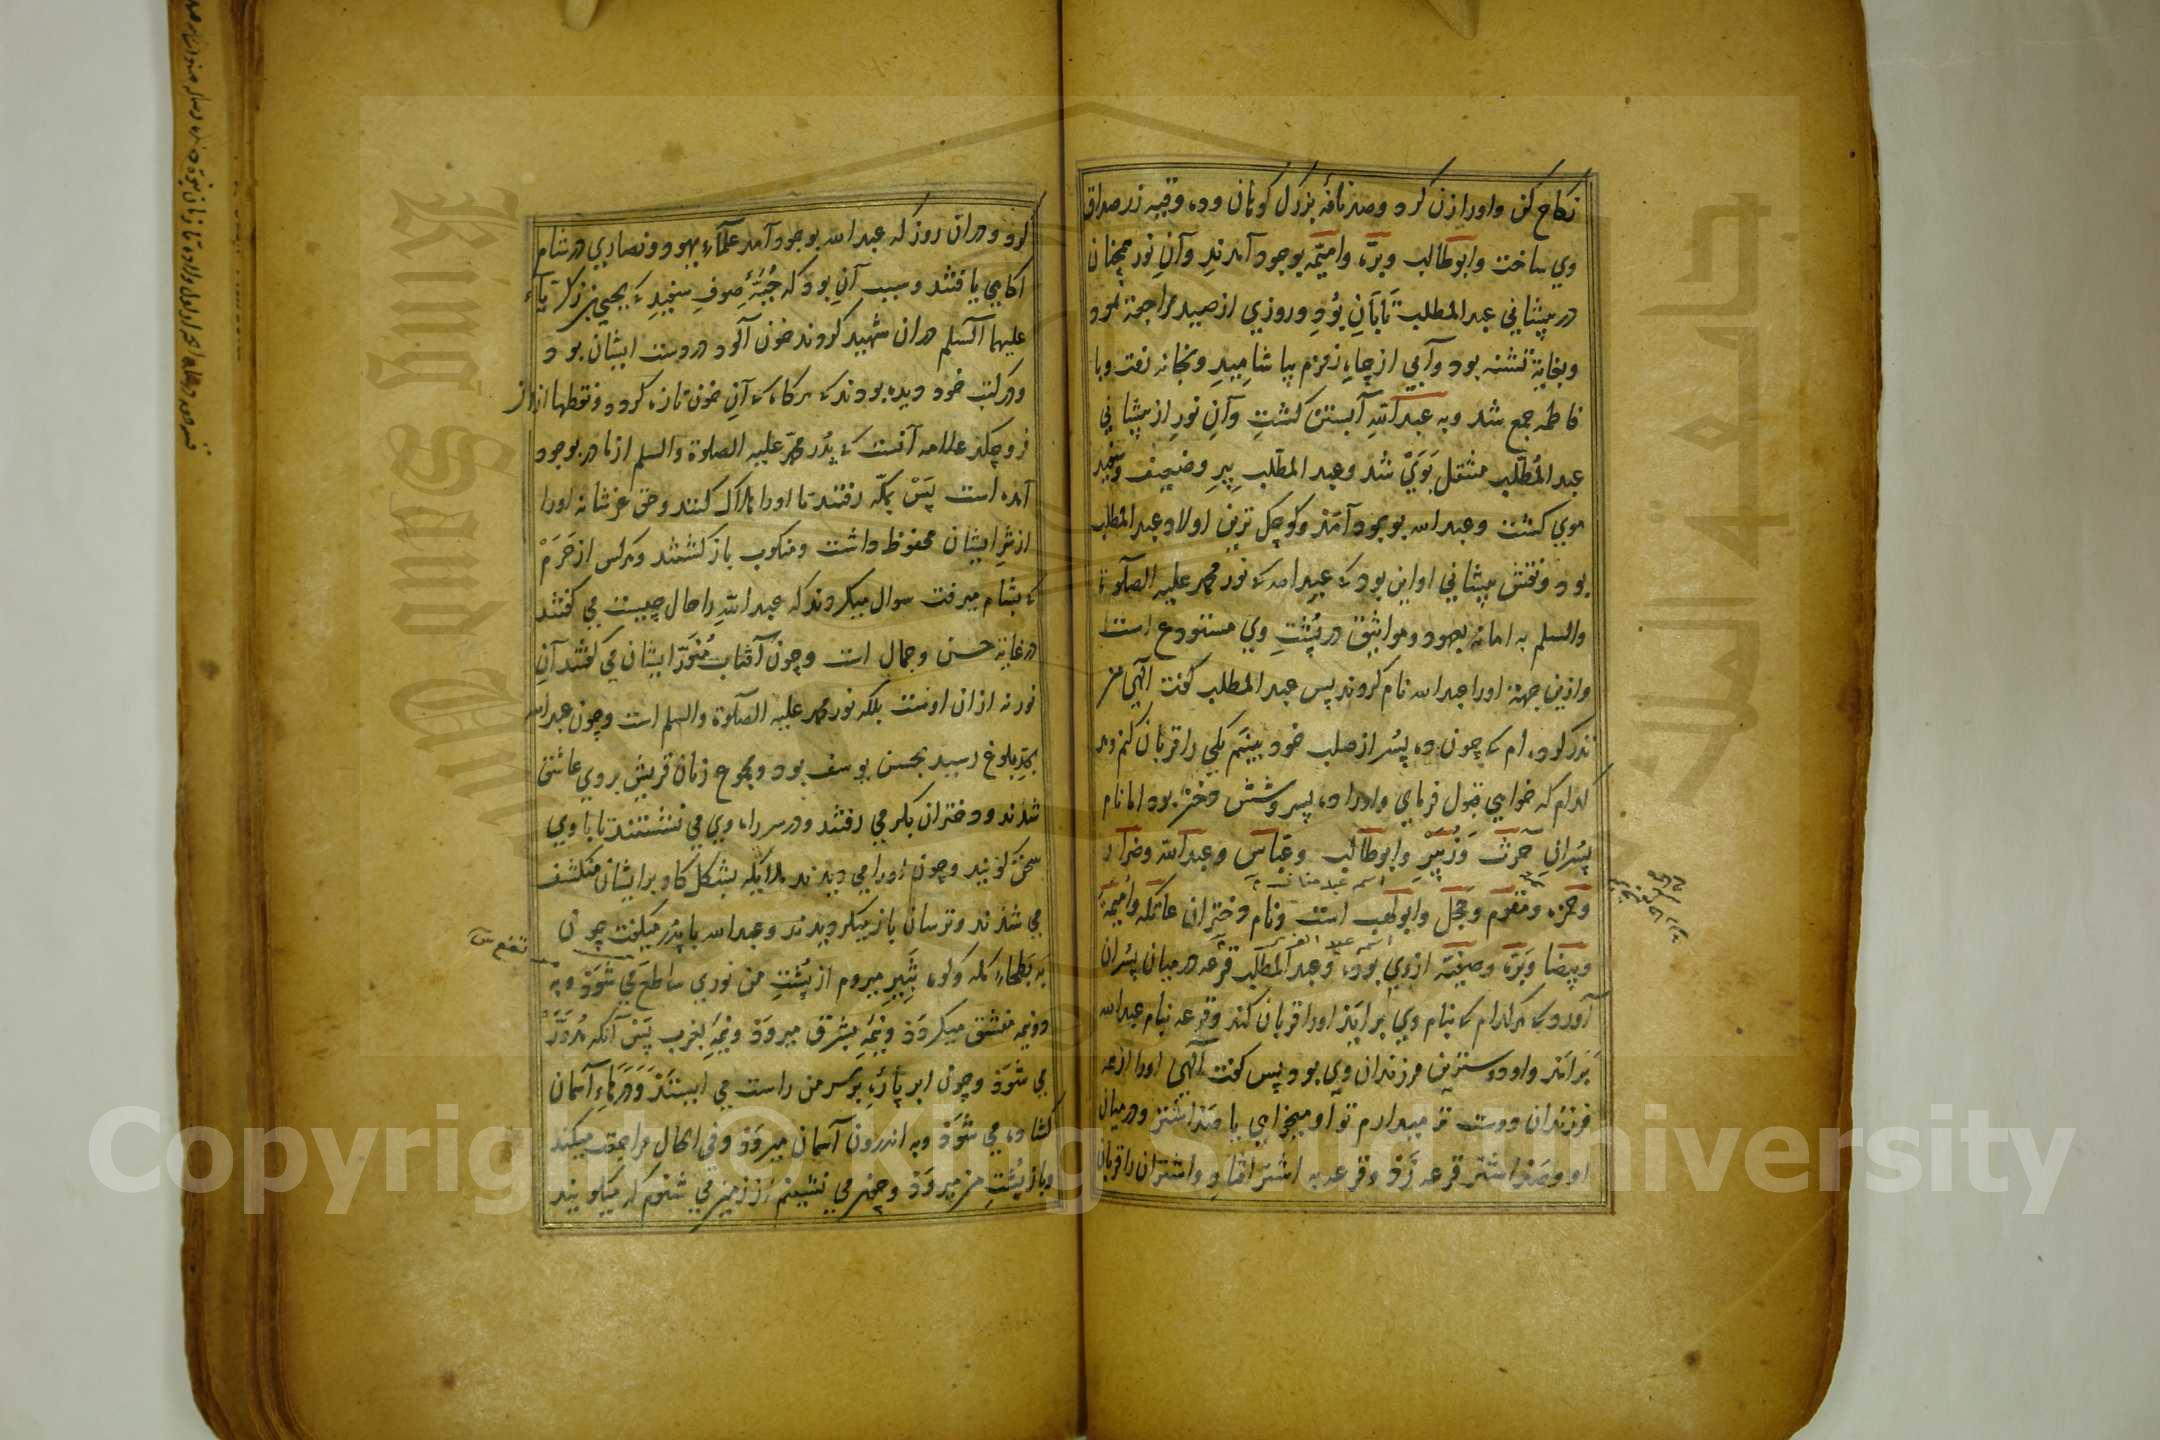 نکاح کن واورا زن کرد وصد ناقهٔ بزرک کوهان وده وقیه زر صداق
وی ساخت وابوطالب وبرّه وامیمه بوجود آمدند وآن نور همچنان
در پیشانی عبد المطلب تابان بود وروزی از صید مراجعة نمود
وبغایة تشنه بود وآبی از چاه زمزم بیاشامید وبخانه رفت وبا
فاطمه جمع شد وبه عبد الله آبستن کشت وآن نور از پیشانی
عبد المطلب منتقل بوی شد وعبد المطلب پیر وضعیف وسفید
موی کشت وعبد الله بوجود آمد وکوچک ترین اولاد عبد المطلب
بود ونقش پیشانی او این بود که عبد الله که نور محمد علیه الصلوة
والسلم به امانة بعهود ومواثیق در پشت وی مستودع است
وازین جهة اورا عبد الله نام کردند پس عبد المطلب کفت الهی من
نذر کرده ام که چون ده پسر از صلب خود بینم یکی را قربان کنم وهر
کدام که خواهی قبول فرمای واورا ده پسر وشش دختر بود اما نام
پسران حرث وزبیر وابوطالب وعباس وعبد الله وضرار
اسم عبد مناف
وحمزه ومقوم وحجل وابولهب است ونام دختران عاتکه وامیمه
اسم عبد العزی
وبیضا وبره وصفیه اروی بود وعبد المطلب قرعه در میان پسران
آورد که هر کدام که بنام وی بر آید اورا قربان کند وقرعه بنام عبد الله
بر آمد واو دوسترین فرزندان وی بود پس کفت الهی اورا از همه
فرزندان دوست تر میدارم تو او میخواهی یا صد اشتر ودر میان
او وصد اشتر قرعه زد وقرعه به اشتر افتاد واشتران را قربان
کرد ودران روز که عبد الله بوجود آمد علمآء یهود ونصاری در شام
اکاهی یافتند وسبب آن بود که جبّهٔ صوف سفید که یحیی بن زکریآء
علیهما السلم دران شهید کردند خون آلود در دست ایشان بود
ودر کتب خود دیده بودند که هر کاه که آن خون تازه کردد ونقطها از
فرو چکد علامه آنست که پدر محمد علیه الصلوة والسلم از مادر بوجود
آمده است پس بمکه رفتند تا اورا هلاک کنند وحق عز شانه اورا
از شر ایشان محفوظ داشت ومنکوب باز کشتند وهر کس از حرم
که بشام میرفت سوال میکردند که عبد الله را حال چیست می کفتند
در غایة حسن وجمال است وچون آفتاب منوّر ایشان می کفتند آن
نور نه ازان اوست بلکه نور محمد علیه الصلوة والسلم است وچون عبد الله
بحد بلوغ رسید بحسن یوسف بود ومجموع زنان قریش بروی عاشق
شدند ودختران بکر می رفتند ودر سر راه وی می نشستند تا با وی
سخن کویند وچون اورا می دیدند ملایکه بشکل کاو برایشان منکشف
می شدند وترسان باز میکردیدند وعبد الله با پدر میکفت چون
به بطحاء مکه وکوه ثبیر میروم از پشت من نوری ساطع می شود وبه
دو نیمه منشق میکردد ونیمه بشرق میرود ونیمه بغرب پس آنکه مدوّر
می شود وچون ابر پاره بر سر من راست می ایستد ودرهاء آسمان
کشاده می شود وبه اندرون آسمان میرود وفی الحال مراجعت میکند
وباز پشت من میرود وچون می نشینم از زمین می شنوم که میکویند